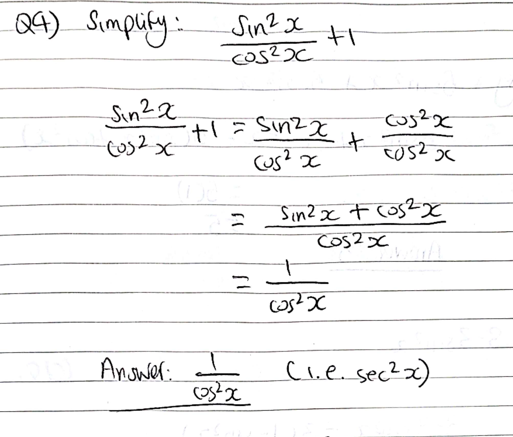 Q4) Simplify: sin²x/cos²x + 1
sin²x/cos²x + 1 = sin²x/cos²x + cos²x/cos²x
= sin²x + cos²x/cos²x
= 1/cos²x
Answer: 1/cos²x (i.e. sec²x)